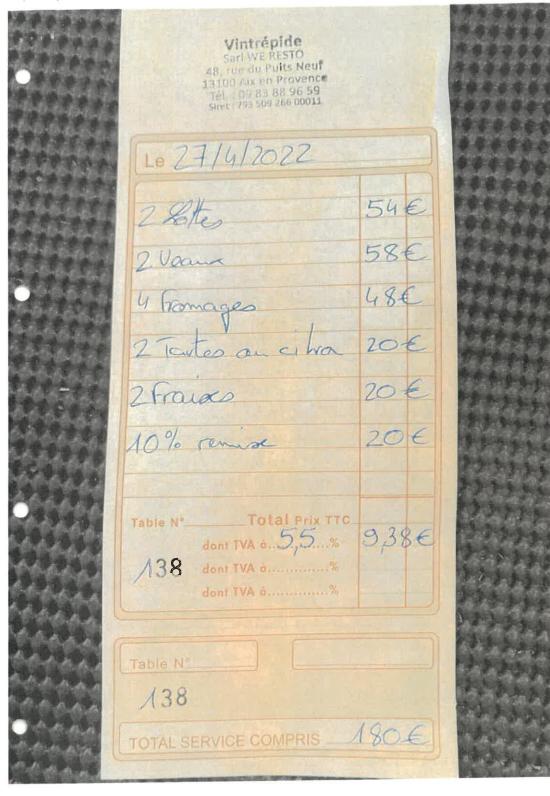 Vintrépide
Sarl WE RESTO
48, rue du Puits Neuf
13100 Aix en Provence
Tél. : 09 83 88 96 59
Siret : 793 509 266 00011
Le 27/4/2022
2 Lottes 54 €
2 Veaux 58 €
4 fromages 48 €
2 Tartes au citron 20 €
2 Fraises 20 €
10% remise 20 €
Table N° Total Prix TTC
dont TVA à 5,5 % 9,38 €
138 dont TVA à..............%
dont TVA à..............%
Table N°
138
TOTAL SERVICE COMPRIS 180 €